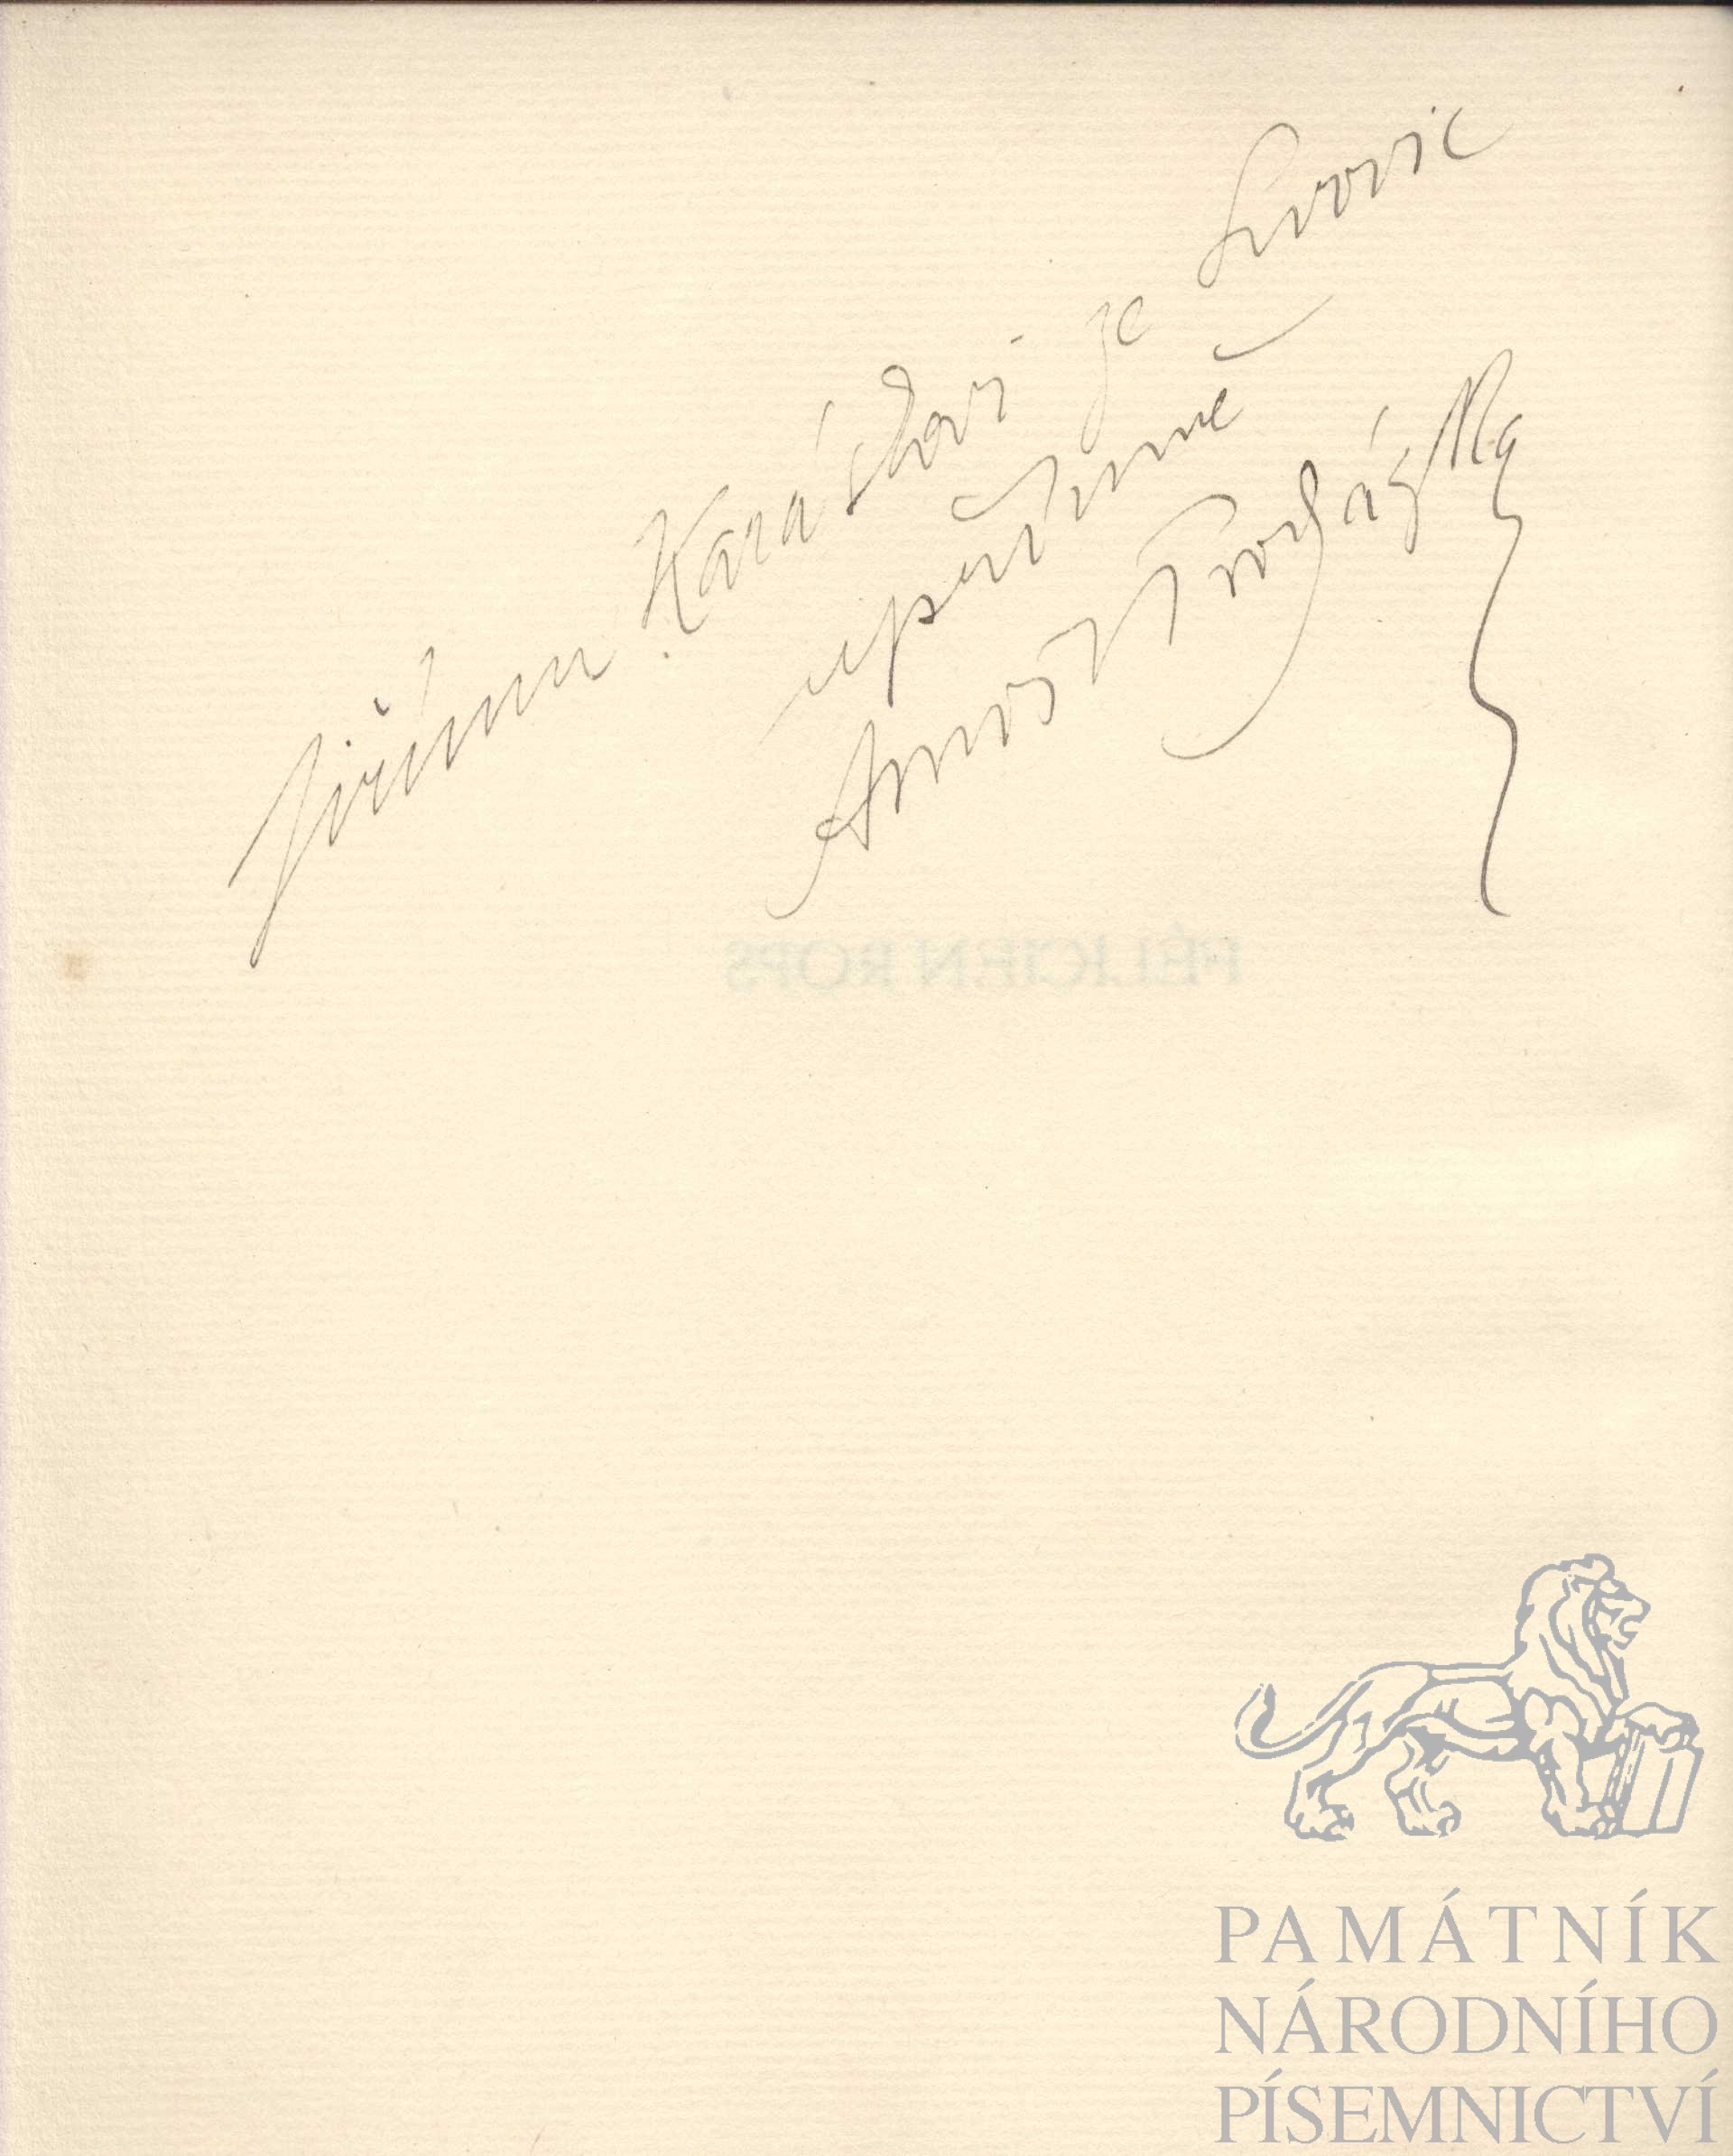 Jiřímu Karáskovi ze Lvovic
upřímně
Arnošt Procházka
FÉLICIEN ROPS
PAMÁTNÍK
NÁRODNÍHO
PÍSEMNICTVÍ